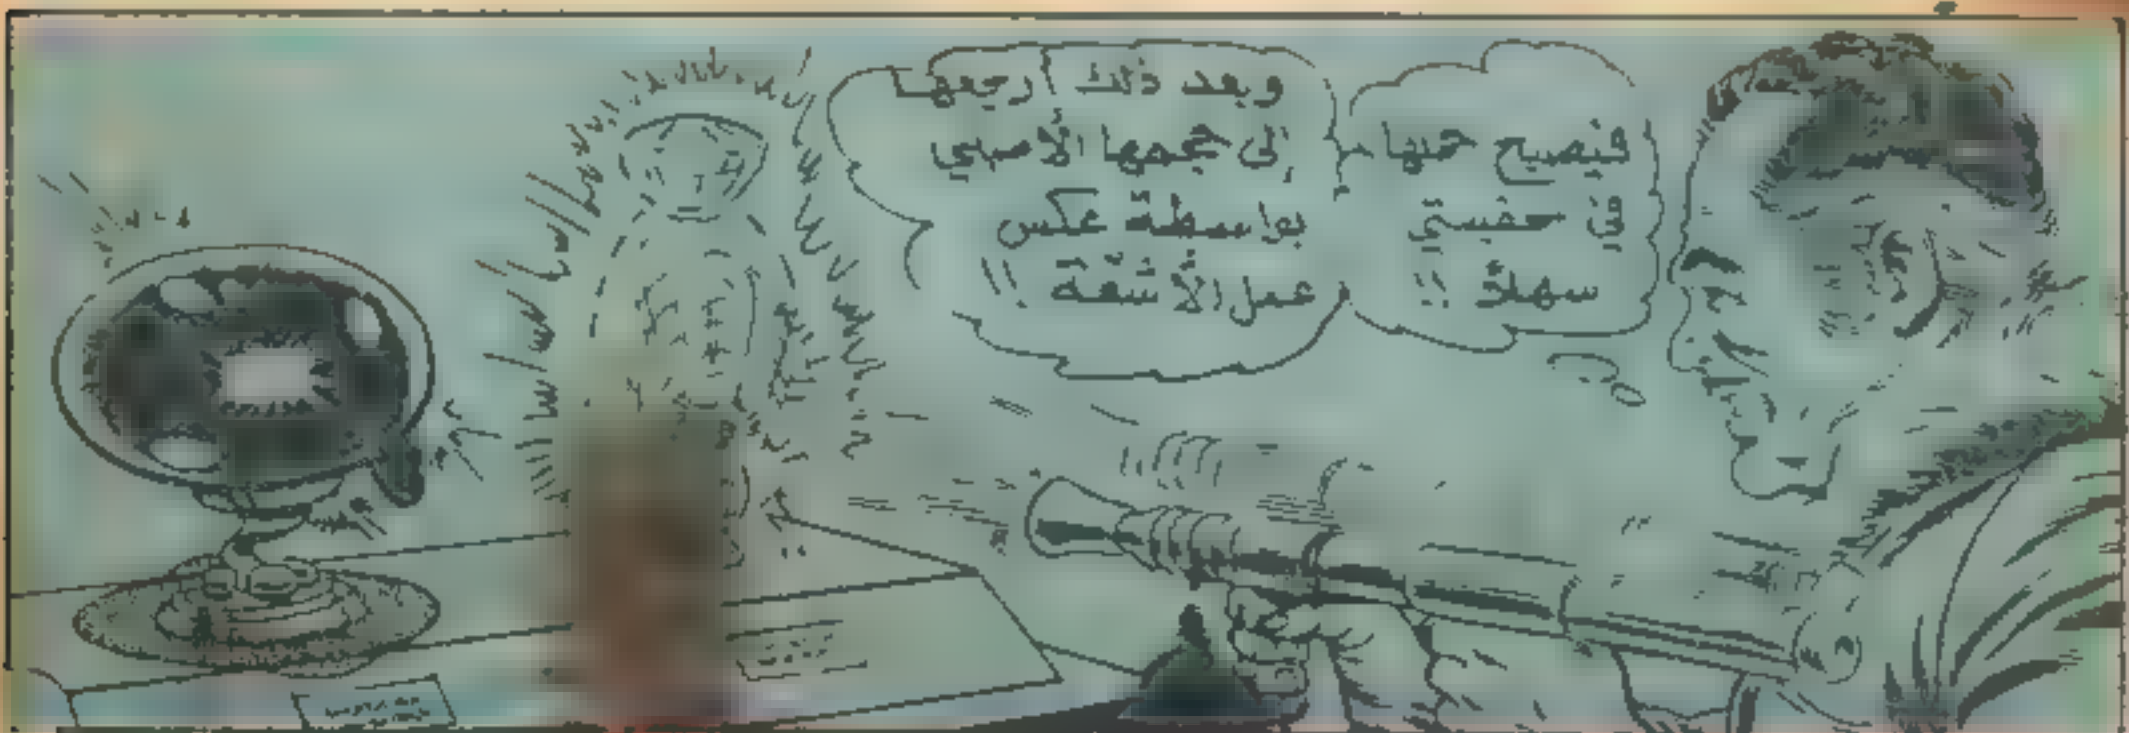 فيصبح حملها
في حقيبتي
سهلاً !!
وبعد ذلك أرجعها
إلى حجمها الأصلي
بواسطة عكس
عمل الأشعة !!